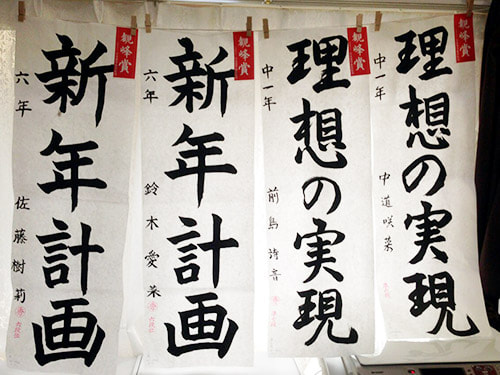 観峰賞
理想の実現
中一年
中道咲菜
観峰賞
理想の実現
中一年
前島詩音
観峰賞
新年計画
六年
鈴木愛菜
観峰賞
新年計画
六年
佐藤樹莉